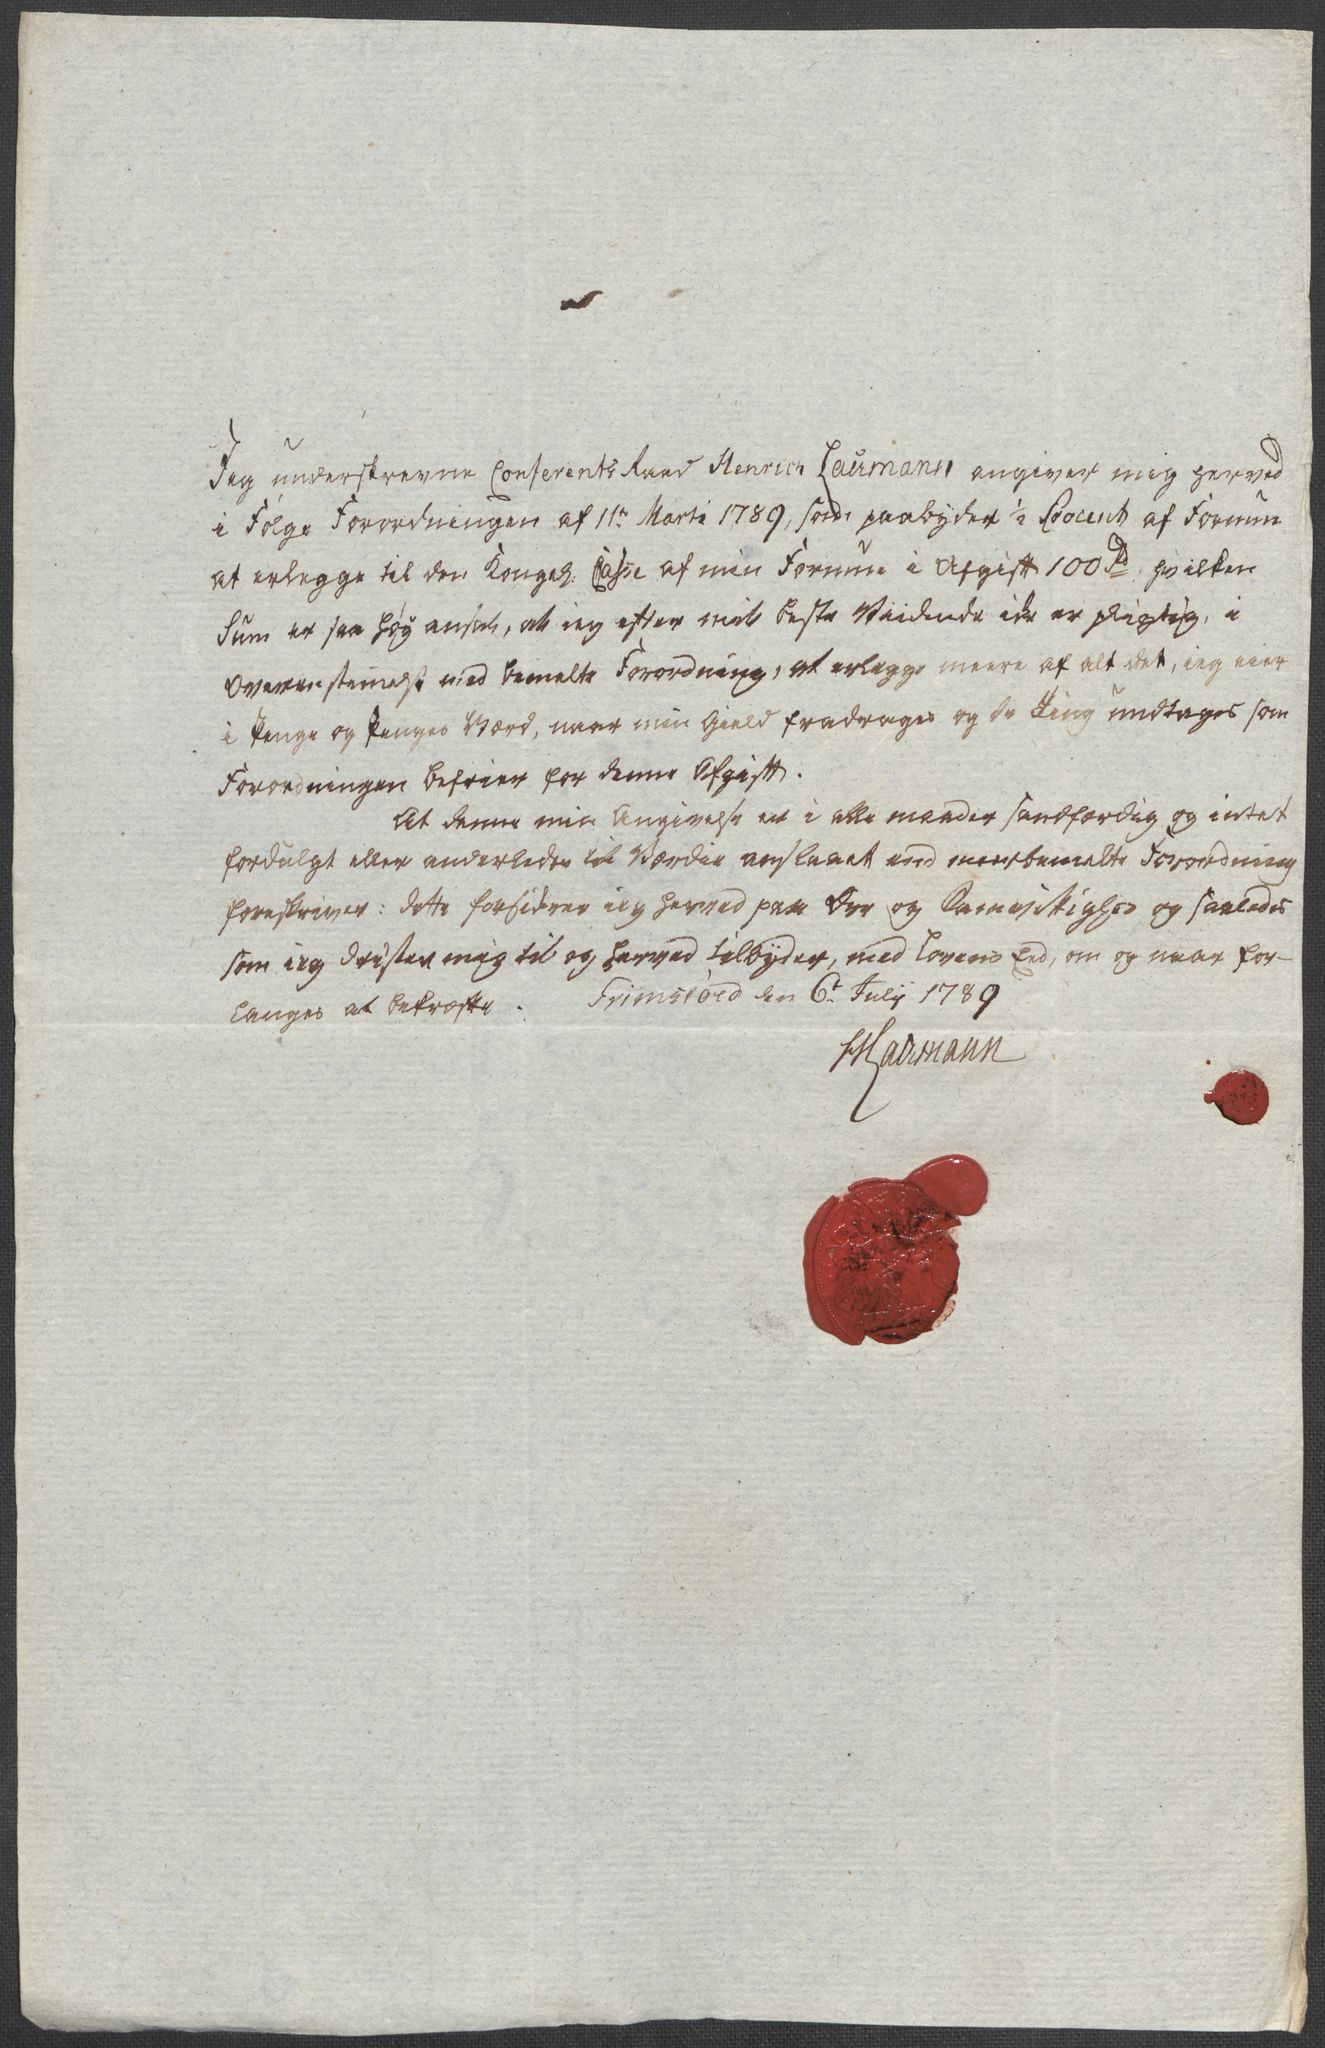 Jeg underskrevne Conferents Raad Henrich Laurmann angiver mig herved
i Følge Forordningen af 11te Martii 1789, som paabyder ½ Procent af Formue
at erlegge til den Kongel: Casse af min Formue i Afgift 100 Rd hvilken
Sum er saa høy ansat, at ieg efter mit beste Vidende ikke er pligtig, i
Overensstemmelse med bemelte Forordning, at erlegge meere af alt det, ieg eier
i Penge og Penges Værd, naar min Gield fradrages og de Ting undtages som
Forordningen befrier for denne Afgift.
At denne min Angivelse er i alle maader sandfærdig og intet
fordulgt eller anderledes til Værdie anslaaet end meerbemelte Forordning
foreskriver: dette forsikrer ieg herved paa Ære og Samvittighed og saaledes
som ieg drister mig til og herved tilbyder, med Lovens Eed, om og naar for-
langes at bekræfte. den 6t July 1789
HLaurmann